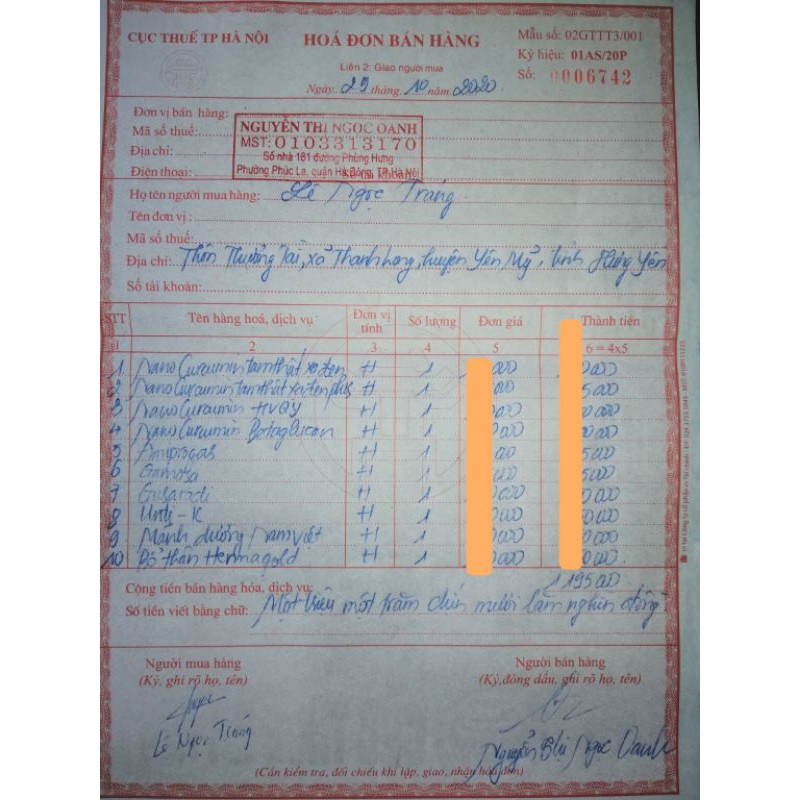 CỤC THUẾ TP HÀ NỘI
HOÁ ĐƠN BÁN HÀNG
Mẫu số: 02GTTT3/001
Ký hiệu: 01AS/20P
Liên 2: Giao người mua
Số: 0006742
Ngày 29 tháng 10 năm 2020
Đơn vị bán hàng:
Mã số thuế:
Địa chỉ:
Điện thoại:
NGUYỄN THỊ NGỌC OANH
MST: 0103313170
Số nhà 181 đường Phùng Hưng
Phường Phúc La, quận Hà Đông, TP Hà Nội
Họ tên người mua hàng: Lê Ngọc Tráng
Tên đơn vị:
Mã số thuế:
Địa chỉ: Thôn Thượng Tài, xã Thanh Long, huyện Yên Mỹ, tỉnh Hưng Yên
Số tài khoản:
STT Tên hàng hoá, dịch vụ Đơn vị tính Số lượng Đơn giá Thành tiền
1 2 3 4 5 6 = 4x5
1 Nano Curcumin tam thất xạ đen H 1 000 0000
2 Nano Curcumin tam thất xạ đen plus H 1 000 5000
3 Nano Curcumin HVQY H 1 0000 00000
4 Nano Curcumin Betaglucan H 1 0000 00000
5 Ampiogas H 1 000 5000
6 H 1 000 5000
7 H 1 0000 0000
8 Unti-K H 1 0000 0000
9 Mãnh dương Nam Việt H 1 0000 0000
10 Bổ thận Hermagold H 1 0000 0000
Cộng tiền bán hàng hóa, dịch vụ: 1195000
Số tiền viết bằng chữ: Một triệu một trăm chín mươi lăm nghìn đồng
Người mua hàng
(Ký, ghi rõ họ, tên)
Người bán hàng
(Ký, đóng dấu, ghi rõ họ, tên)
Lê Ngọc Tráng
Nguyễn Thị Ngọc Oanh
(Cần kiểm tra, đối chiếu khi lập, giao, nhận hóa đơn)